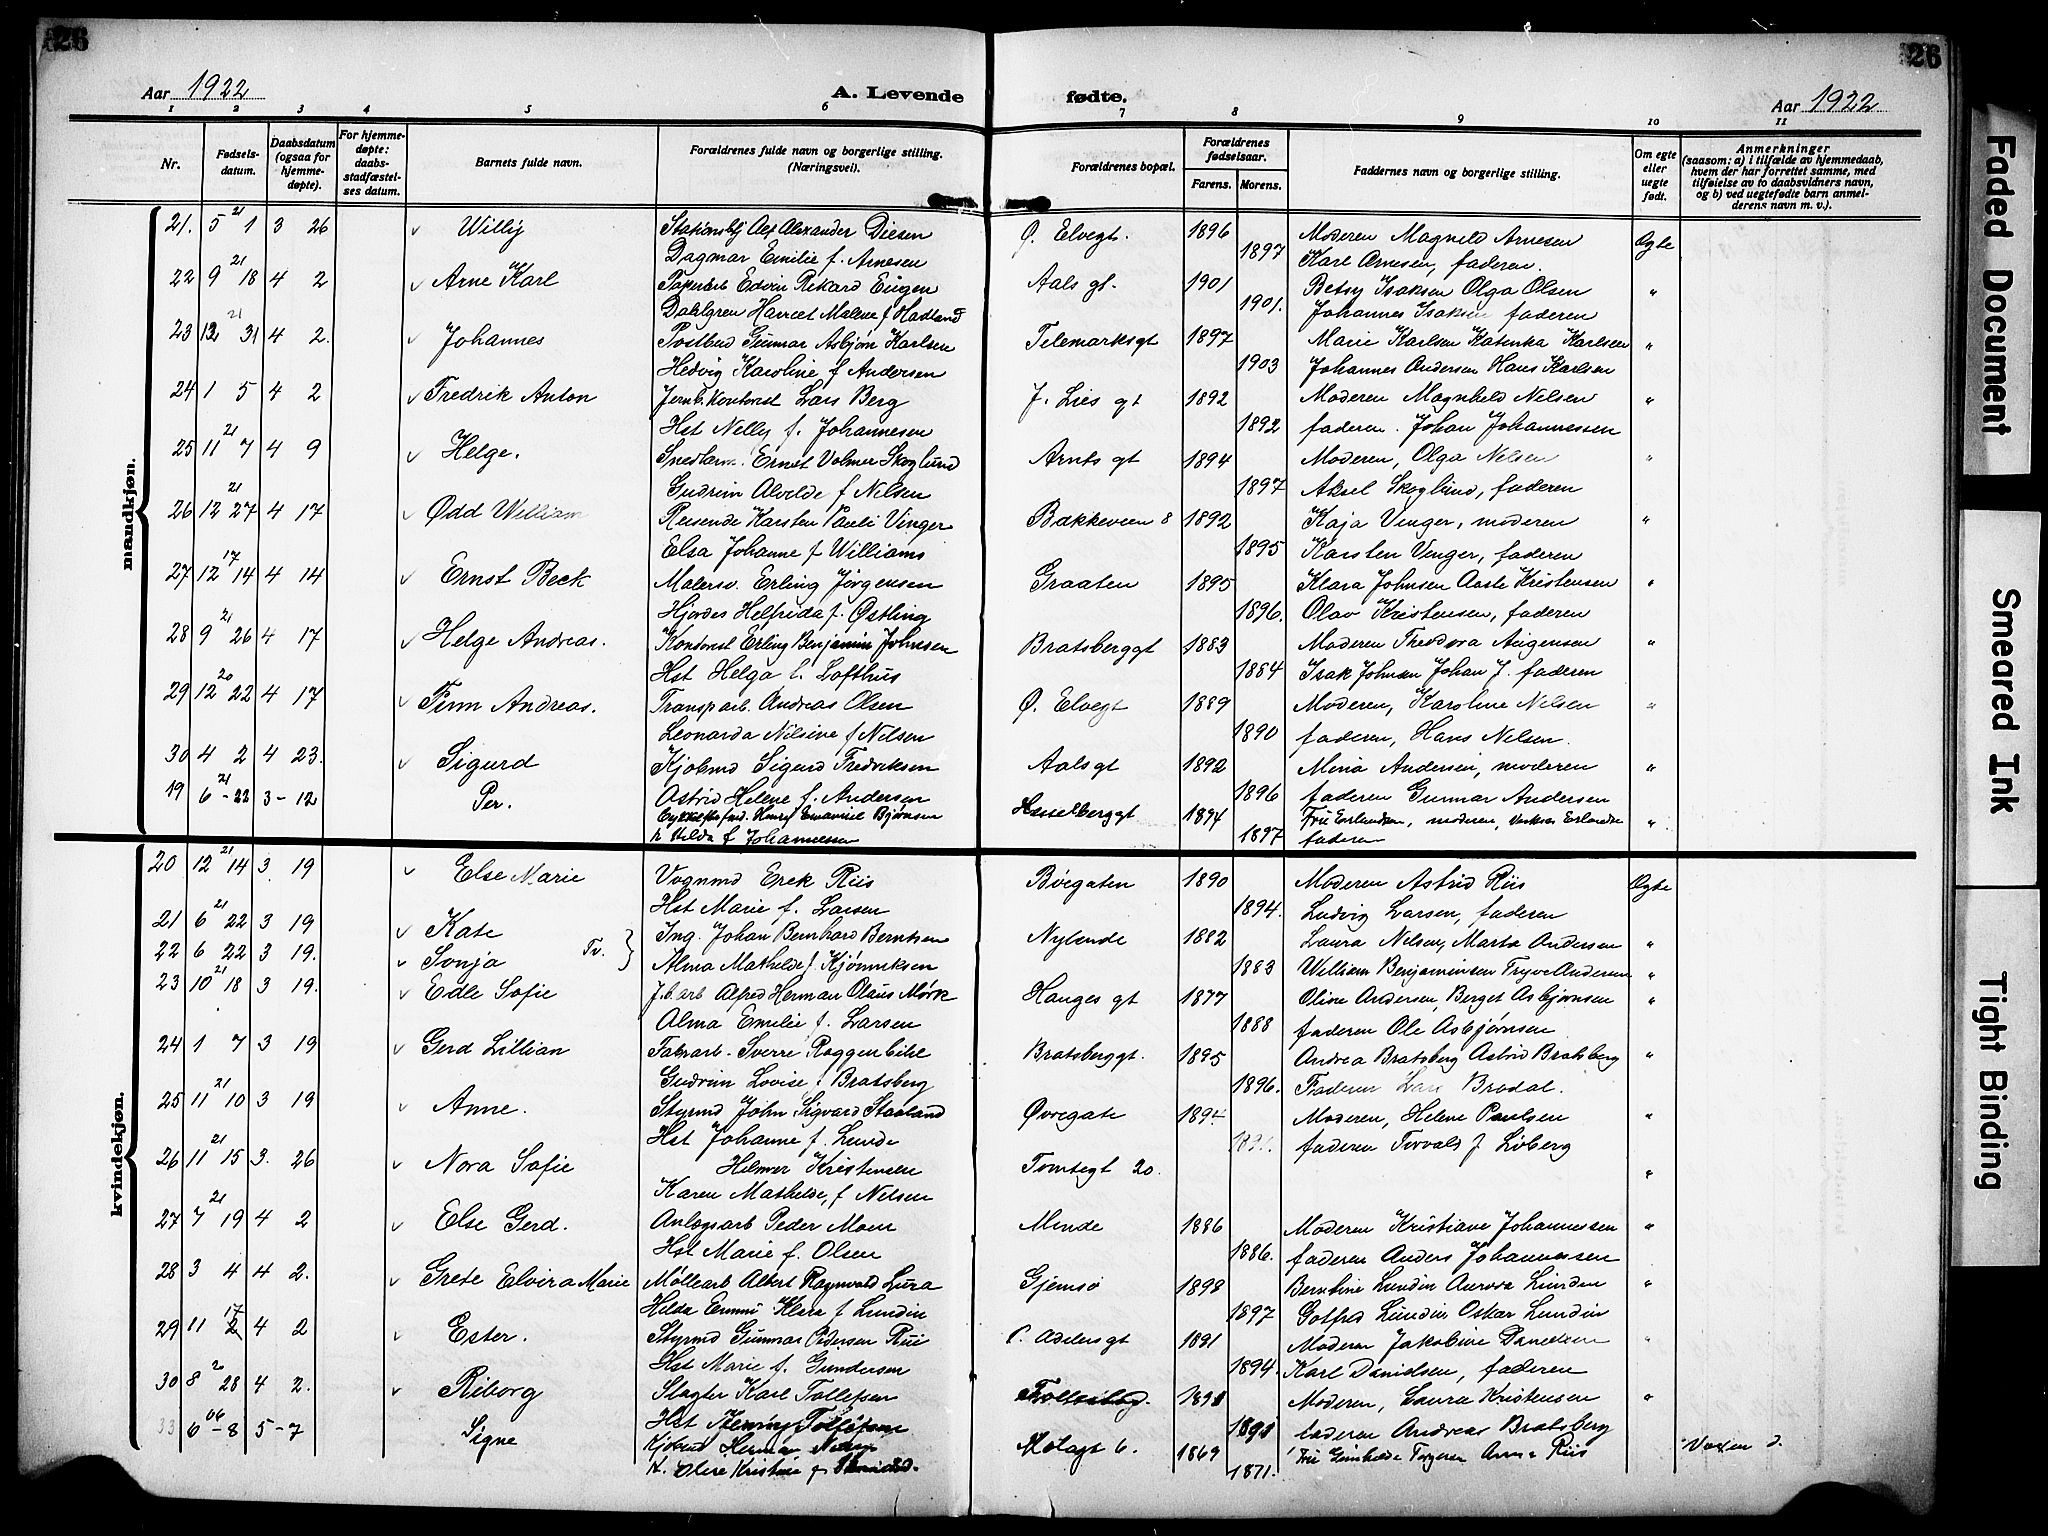 26
26
Aar 1922
A. Levende fødte.
Aar 1922
1 2 3 4 5 6 7 8 9 10 11
Nr.
Fødselsdatum.
Daabsdatum (ogsaa for hjemmedøpte).
For hjemmedøpte: daabsstadfæstelses datum.
Barnets fulde navn.
Forældrenes fulde navn og borgerlige stilling. (Næringsvei).
Forældrenes bopæl.
Forældrenes fødselsaar.
Farens. Morens.
Faddernes navn og borgerlige stilling.
Om egte eller uegte født.
Anmerkninger (saasom: a) i tilfælde av hjemmedaab, hvem der har forrettet samme, med tilføielse av to daabsvidners navn, og b) ved uegtefødte barn anmelderens navn m. v.).
mandkjøn.
21. 5 21 1 3 26 Willy Alexander Diesen Ø. Elvegt. 1896 Moderen Magnild Arnesen Egte
Dagmar Emilie f. Arnesen 1897 Karl Arnesen, faderen.
22 9 21 18 4 2 Arne Karl Edvin Rikard Eugen Aals gt. 1901 Betsy Isaksen Olga Olsen "
Dahlgren Harriet Malene f Hadland 1901. Johannes Isaksen faderen
23 12 21 31 4 2. Johannes Postbud Gunnar Asbjørn Karlsen Telemarksgt 1897 Marie Karlsen Katinka Karlsen "
Hedvig Karoline f Andersen 1903 Johannes Andersen Hans Karlsen
24 1 5 4 2 Fredrik Anton Jernb. Kontorist Lars Berg J. Lies gt 1892 Moderen Magnhild Nilsen "
Hst Nelly f. Johannesen 1892 faderen. Johan Johannessen
25 11 21 7 4 9 Helge. Ernst Volmer Skoglund Arnts gt 1894 Moderen, Olga Nilsen "
Gudrun Alvilde f Nilsen 1897 Aksel Skoglund, faderen
26 12 21 27 4 17 Odd William Reisende Karsten Pauli Vinger Bakkeveien 8 1892 Kaja Vinger, moderen "
Elsa Johanne f Williams 1895 Karsten Vinger, faderen
27 12 17 14 4 14 Ernst Beck Malersv. Erling Jørgensen Graaten 1895 Klara Johnsen Aaste Kristensen "
Hjørdis Helfrida f. Østling 1896. Olav Kristensen, faderen
28 9 21 26 4 17 Helge Andreas. Kontorist Erling Benjamin Johnsen Bratsberggt 1883 Moderen Theodora "
Hst Helga f. Lofthus 1884 Isak Johnsen Johan J. faderen
29 12 20 22 4 17 Finn Andreas. Transp arb. Andreas Olsen Ø. Elvegt 1889 Moderen, Karoline Nilsen "
Leonarda Nilsine f Nilsen 1890 faderen, Hans Nilsen.
30 4 2 4 23. Sigurd Kjøbmd Sigurd Fredriksen Aalsgt 1892 Mina Andersen, moderen "
Astrid Helene f. Andersen 1896 faderen Gunnar Andersen
19 6 21 - 22 3 - 12 Per. Henry Emanuel Bjørnsen Hesselberggt 1894 Fru Erlandsen, moderen, Erlandsen "
h. Hilda f Johannessen 1897 faderen
kvindekjøn.
20 12 21 14 3 19 Else Marie Vognmd Erek Riis Børgaten 1890 Moderen Astrid Riis Egte
Hst Marie f. Larsen 1894. Ludvig Larsen, faderen
21 6 21 22 3 19 Kate Tv. } Ing. Johan Bernhard Berntsen Nylende 1882 Laura Nilsen, Marta Andersen "
22 6 22 3 19. Sonja Alma Mathilde f. 1883 William Benjaminsen Andersen "
23 10 21 18 3 19. Edle Sofie J.b. arb Alfred Herman Olaus Mørk Hauges gt 1877 Oline Andersen, Berget Asbjørnsen "
Alma Emilie f. Larsen 1888 faderen Ole Asbjørnsen
24 1 7 3 19 Gerd Lillian Fabrarb. Sverre Roggenbihl Bratsberggt. 1895 Andrea Bratsberg Astrid Bratsberg "
Gudrun Lovise f Bratsberg 1896. Faderen Lars Brodal.
25 11 21 10 3 19 Anne. Styrmd John Sigvard Staaland Øvregate 1894 Moderen, Helene Paulsen "
Hst Johanne f. Lunde faderen Torvald J Løberg
26 11 21 15 3. 26 Nora Sofie Hilmer Kristensen Tomtegt 20. "
Karen Mathilde, f Nilsen
27 7 21 19 4 2 Else Gerd. Anlegsarb Peder Moen Minde 1886 Moderen Kristiane Johannessen "
Hst Marie f. Olsen 1886. faderen Anders Johannessen
28 3 4 4 2. Grete Elvira Marie Møllearb Albert Ragnvald Lura Gjemsø 1898 Berntine Lundin Aurora Lundin "
Hilda Emmi Klara f Lundin 1897 Gotfred Lundin Oskar Lundin
29 11 17 2 4 2 Ester. Styrmd Gunnar Pedersen Riis C. Adelersgt 1891 Moderen Jakobine Danielsen "
Hst Marie f. Gundersen 1894. Karl Danielsen, faderen
30 8 20 28 4 2. Riborg Slagter Karl Tollefsen 1891 Moderen, Laura Kristensen "
Hst Tollefsen 1891 faderen Andreas Bratsberg
33 6 06 - 8 5 - 7 Signe Kjøbmd Herman 6. 1869 Fru Arna Riis Voxen d.
h. Oline Kristine f. 1871.
Faded Document
Smeared Ink
Tight Binding